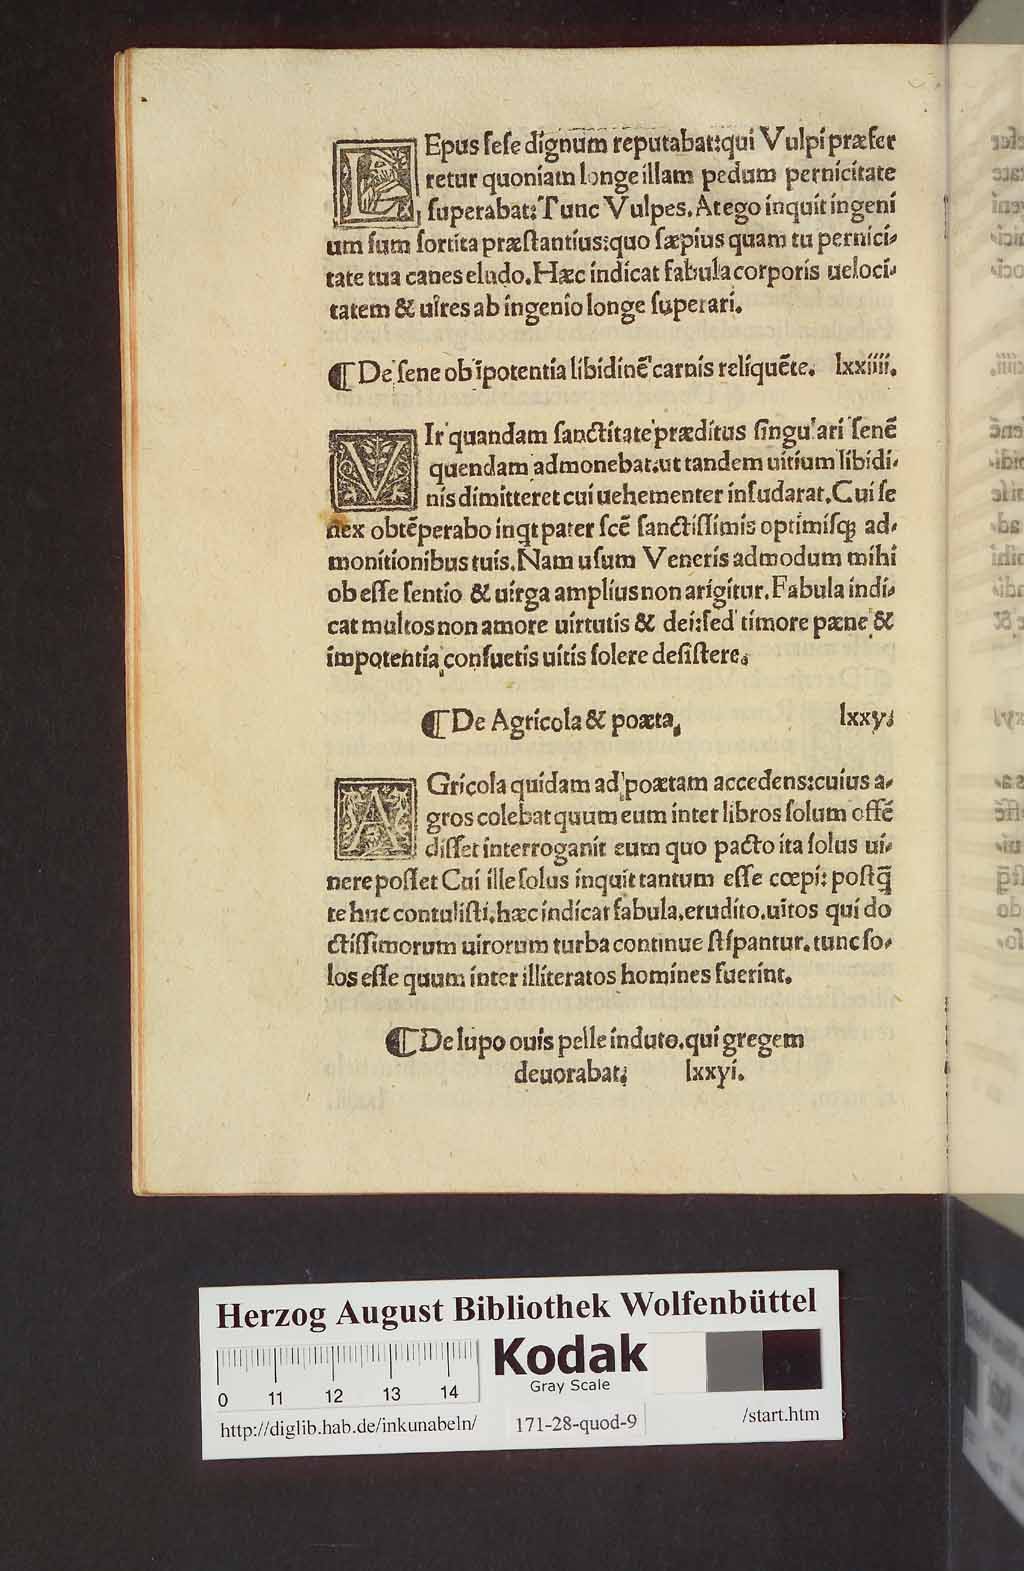 LEpus ſeſe dignum reputabat:qui Vulpi præfer
retur quoniam longe illam pedum pernicitate
ſuperabat: Tunc Vulpes. At ego inquit ingeni
um ſum ſortita præſtantius:quo ſæpius quam tu pernici⸗
tate tua canes eludo. Hæc indicat fabula corporis ueloci⸗
tatem & uires ab ingenio longe ſuperari.
¶ De ſene ob īpotentia libidinē carnis reliquēte. lxxiiii.
VIr quandam ſanctitate præditus ſingulari ſenē
quendam admonebat.ut tandem uitium libidi⸗
nis dimitteret cui uehementer inſudarat. Cui ſe
nex obtēperabo inqt pater ſcē ſanctiſſimis optimiſqꝫ ad⸗
monitionibus tuis. Nam uſum Veneris admodum mihi
ob eſſe ſentio & uirga amplius non arigitur. Fabula indi⸗
cat multos non amore uirtutis & dei:ſed timore pæne &
impotentia conſuetis uitis ſolere deſiſtere.
¶ De Agricola & poæta. lxxv.
AGricola quidam ad poætam accedens:cuius a⸗
gros colebat quum eum inter libros ſolum offē
diſſet interroganit eum quo pacto ita ſolus ui⸗
nere poſſet Cui ille ſolus inquit tantum eſſe cœpi: poſtq̄
te huc contuliſti. hæc indicat fabula.erudito.uiros qui do
ctiſſimorum uirorum turba continue ſtipantur.tunc ſo⸗
los eſſe quum inter illiteratos homines fuerint.
¶ De lupo ouis pelle induto.qui gregem
deuorabat: lxxvi.
Herzog August Bibliothek Wolfenbüttel
Kodak
Gray Scale
0 11 12 13 14
http://diglib.hab.de/inkunabeln/ 171-28-quod-9 /start.htm